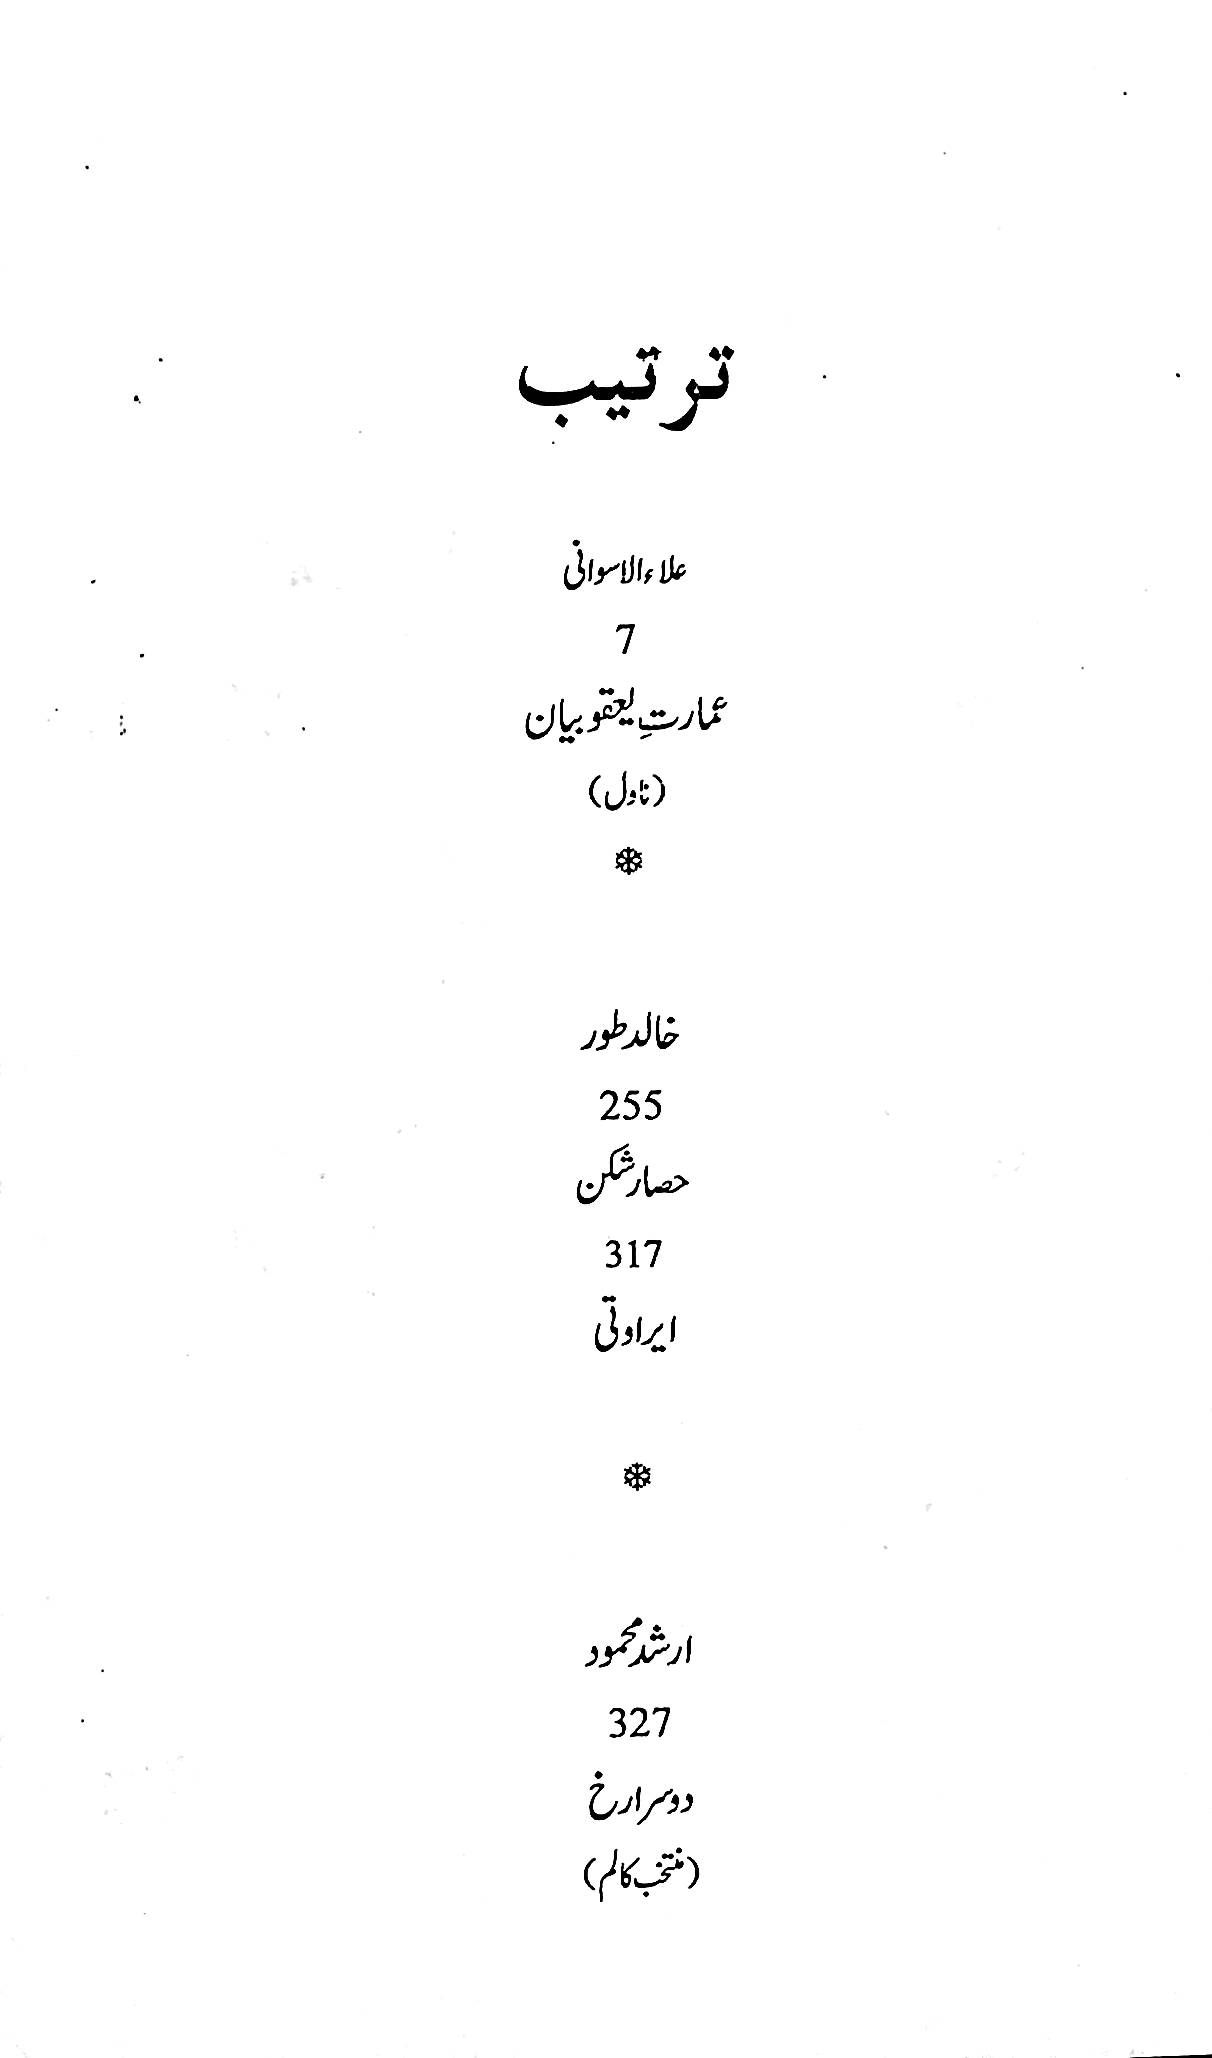 ترتیب
علاء الاسوانی
7
عمارتِ یعقوبیان
(ناول)
❄
خالد طور
255
حصار شکن
317
ایراوتی
❄
ارشد محمود
327
دوسرا رخ
(منتخب کالم)